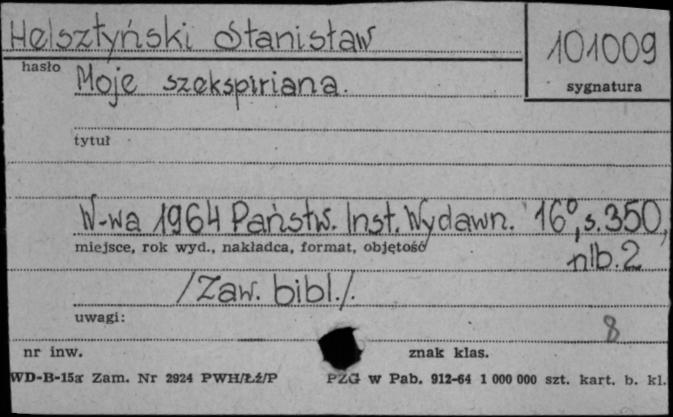 Helsztyński Stanisław
101009
hasło
sygnatura
Moje szekspiriana.
tytuł
W-wa 1964 Państw. Inst. Wydawn. 16°, s. 350,
miejsce, rok wyd., nakładca, format, objętość
nlb. 2
/Zaw. bibl./.
uwagi:
8
nr inw.
znak klas.
WD-B-15a Zam. Nr 2924 PWH/Łź/P
PZG w Pab. 912-64 1 000 000 szt. kart. b. kl.